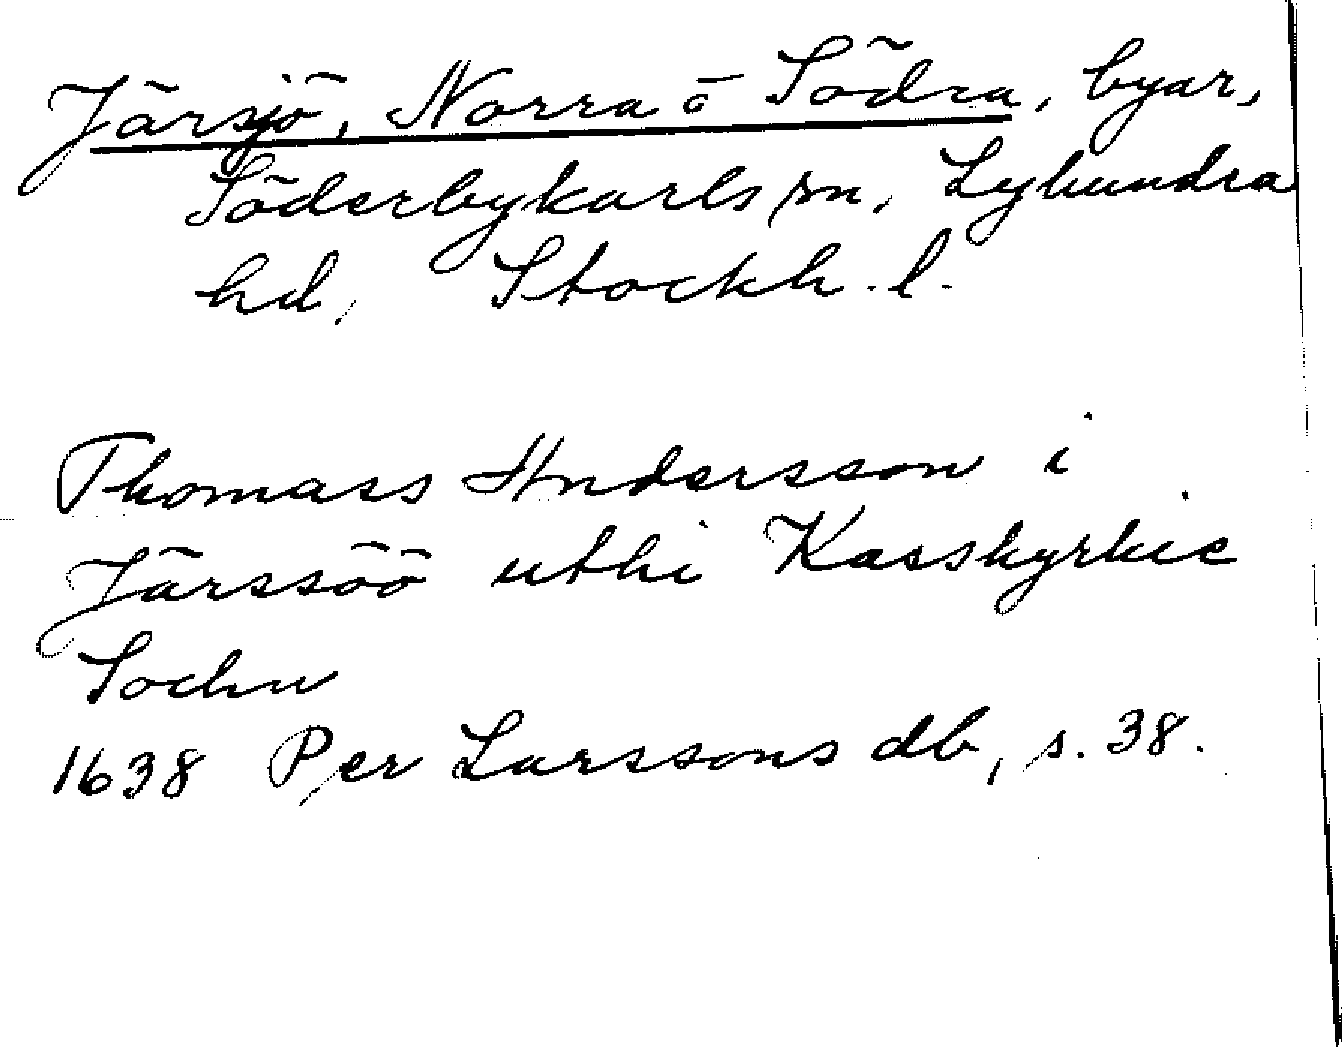 Järsjö, Norra o Södra, byar,
Söderbykarls sn, Lyhundra
hd, Stockh. l.
Thomass Andersson i
Järssöö uthi Kasskyrkie
Sochn
1638 Per Larssons db, s. 38.